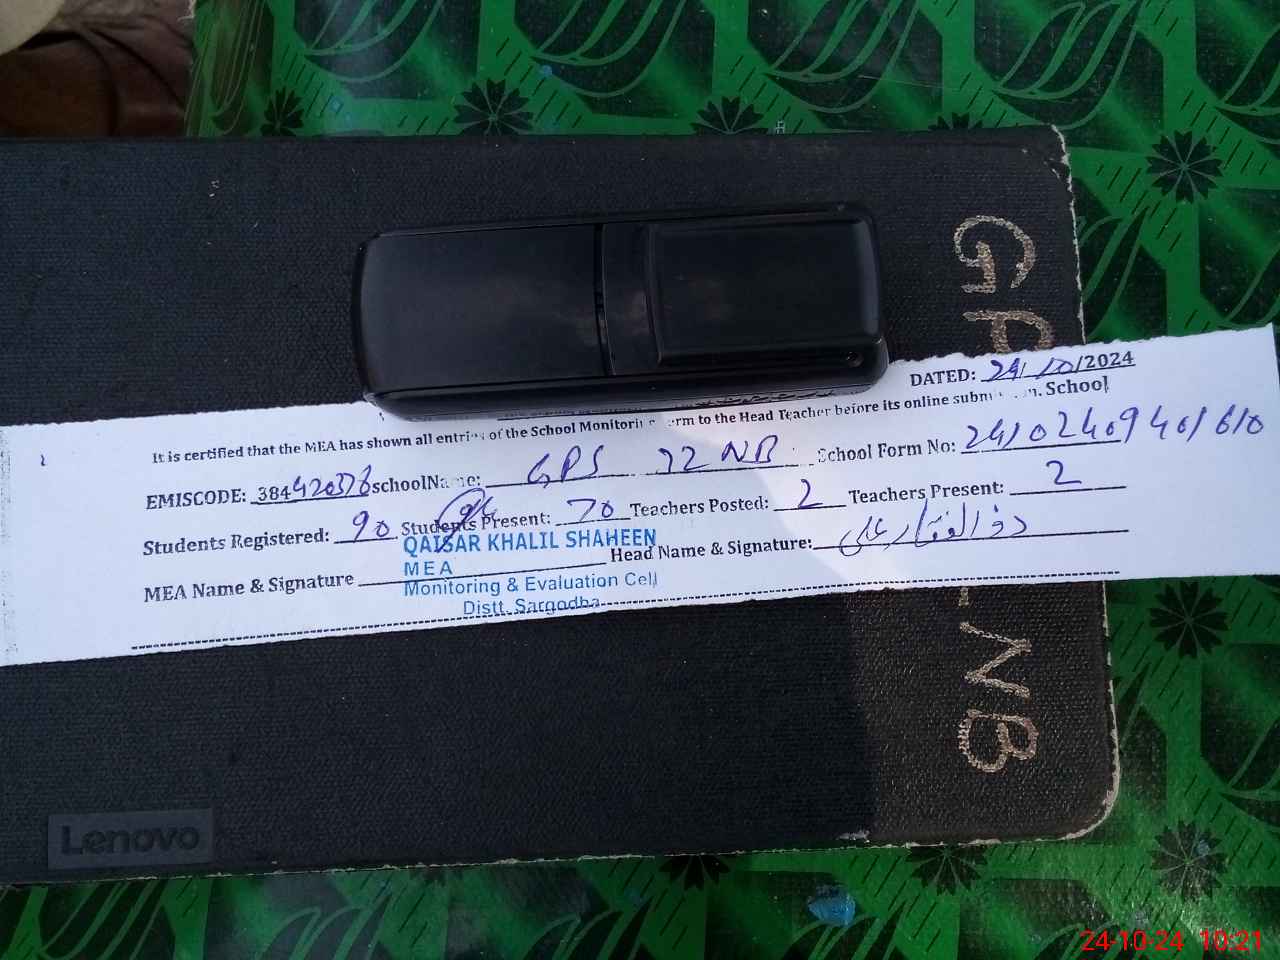 GP
DATED: 24/10/2024
It is certified that the MEA has shown all entries of the School Monitoring Form to the Head Teacher before its online School
EMISCODE: 384420376 schoolName: GPS 32 NB School Form No:
Students Registered: 90 Students Present: 70 Teachers Posted: 2 Teachers Present: 2
QAISAR KHALIL SHAHEEN
MEA Name & Signature Head Name & Signature: ذوالفقار علی
MEA
Monitoring & Evaluation Cell
Distt. Sargodha
NB
Lenovo
24-10-24 10:21